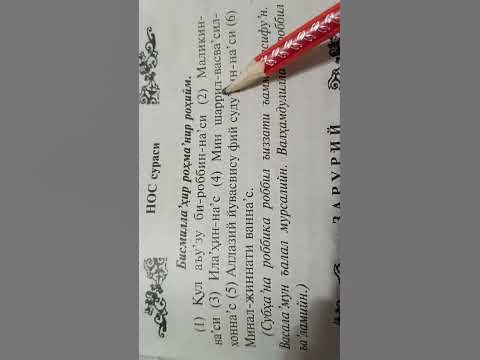 НОС сураси
Бисмилла’ҳир роҳма’нир роҳийм.
(1) Қул аъу’зу би-роббин-на’си (2) Маликин-
на’си (3) Ила’ҳин-на’с (4) Мин шаррил-васва’сил-
хонна’с (5) Аллазий йувасвису фий суду
ин-на’си (6)
Минал-жиннати ванна’с.
(Субҳа’на роббика роббил ъиззати ъамм
сифу’н.
Васала’мун ъалал мурсалийн. Валҳамдулилла
роббил
ъа’ламийн.)
ЗАРУРИЙ